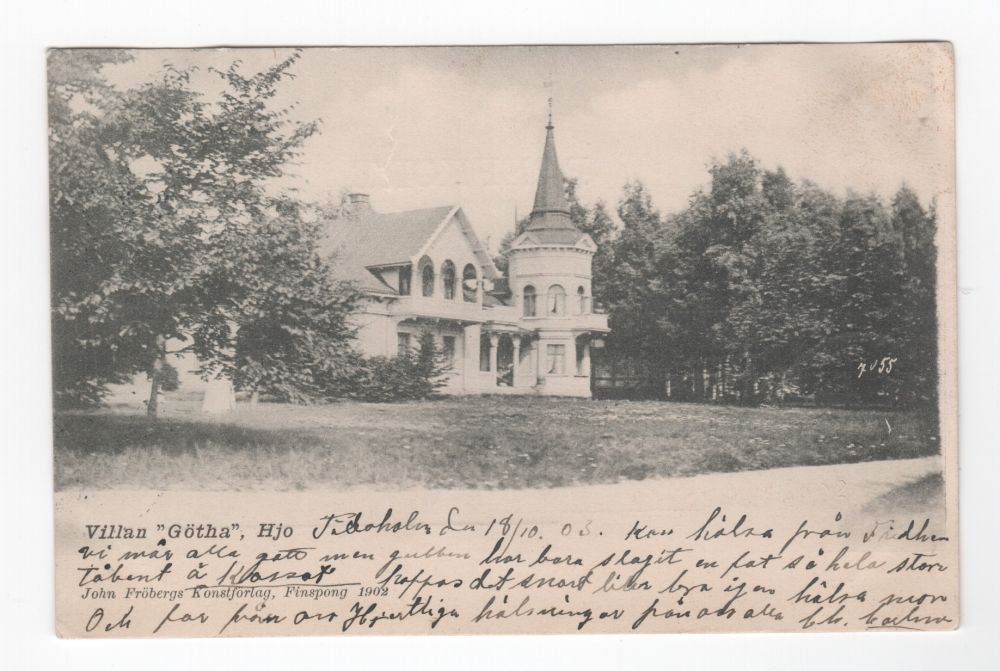 7055
Villan "Götha", Hjo den 18/10. 03. kan hälsa från
vi mår alla gott men gubben har bara slagit en fat så hela stora
tåbent å hoppas det snart blir bra igen hälsa mor
John Fröbergs Konstförlag, Finspong 1902
Och far från oss Hjertliga hälsningar från oss alla